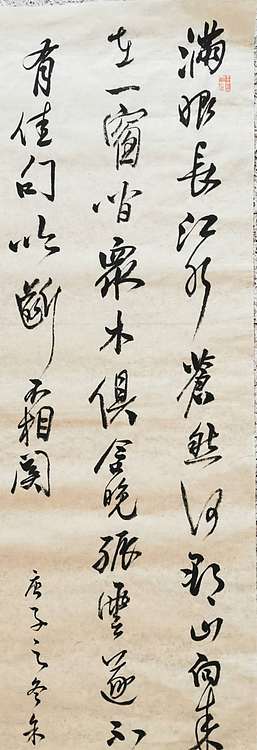 滿眼長江水蒼然何郡山向來
在一窗間衆木俱含晚孤雲遂不
有佳句吟斷不相関
庚子之冬